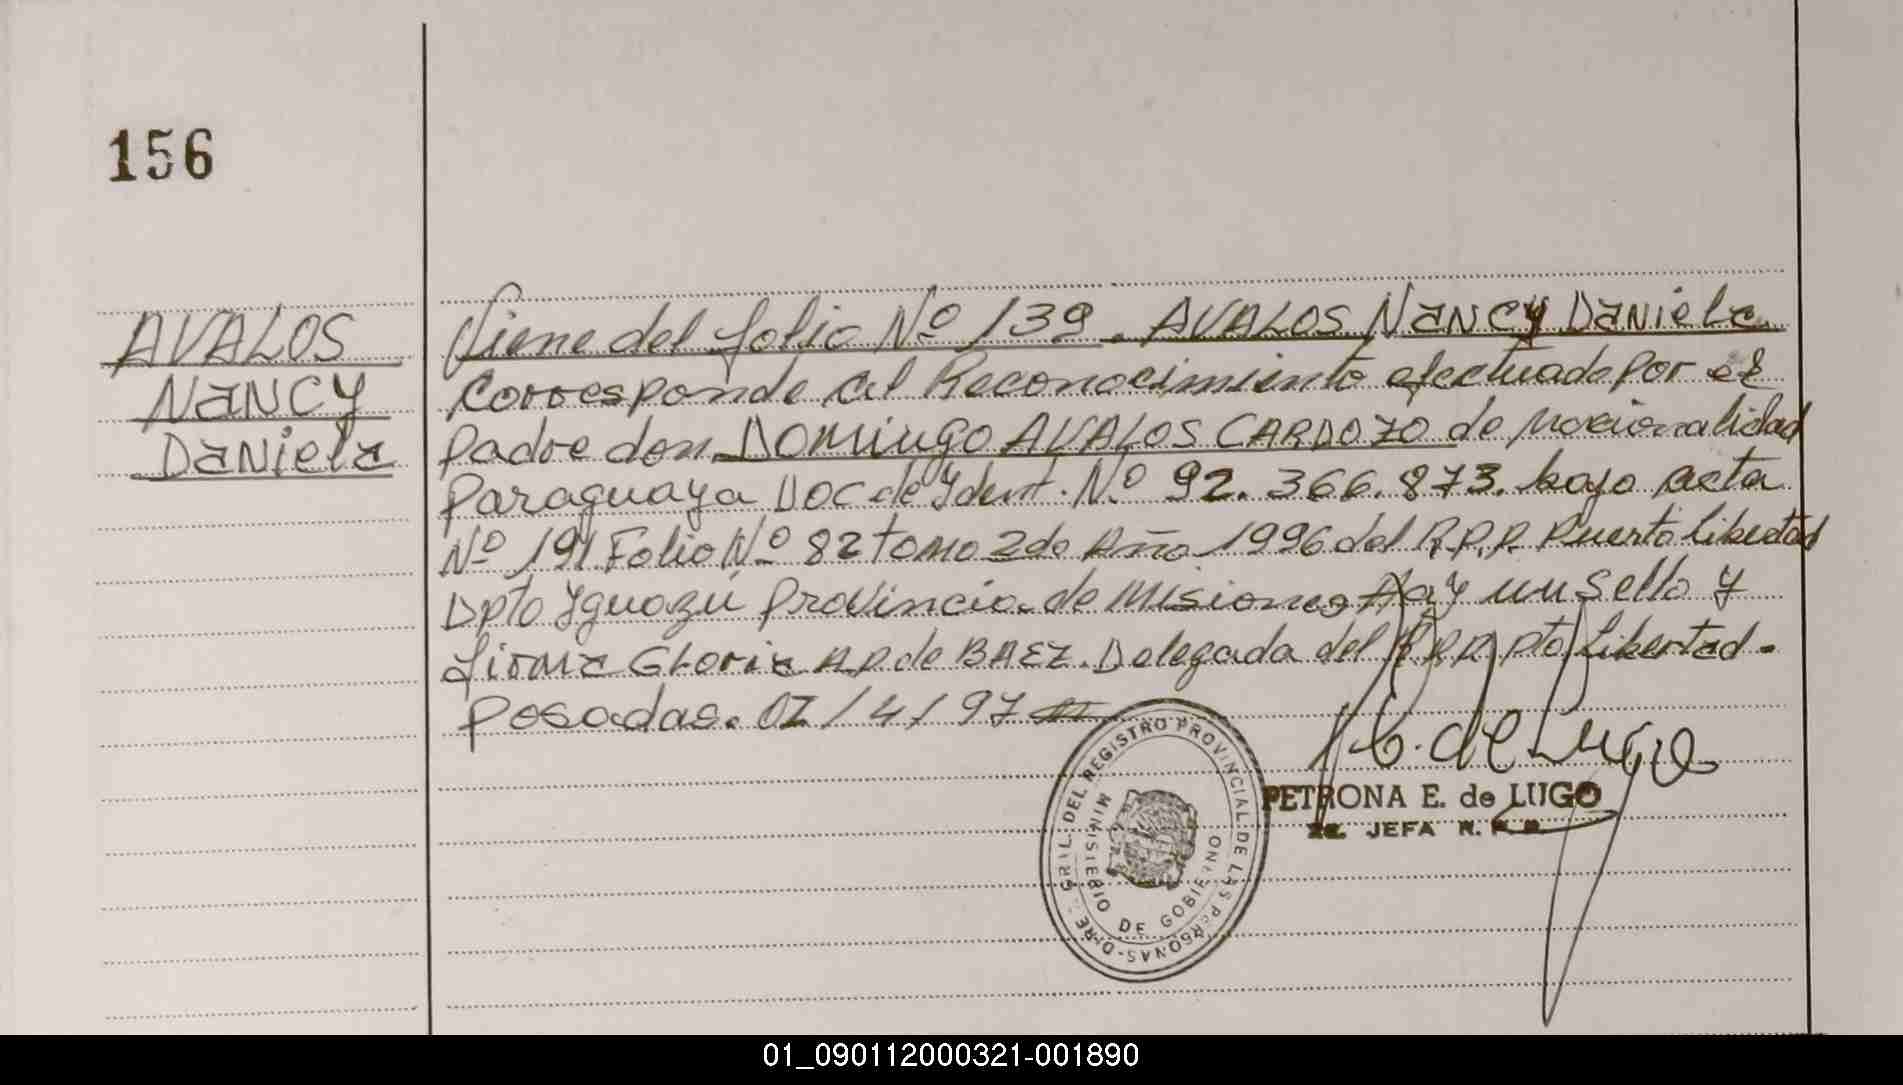 156
AVALOS
NANCY
Daniela
Viene del folio Nº 139. AVALOS NANCY Daniela
Corresponde al Reconocimiento efectuado por el
padre don DOMINGO AVALOS CARDOZO de nacionalidad
paraguaya Doc de Ydent. Nº 92.366.873. bajo acta
Nº 191 Folio Nº 82 tomo 2do Año 1996 del R.P.P. Puerto Libertad
Dpto Yguazú Provincia de Misiones Hay un Sello y
firma Gloria A.P. de BAEZ. Delegada del R.P.P. pto Libertad.
Posadas. 07/4/97
DEL REGISTRO PROVINCIAL DE LAS PERSONAS
MINISTERIO DE GOBIERNO
PETRONA E. de LUGO
JEFA R.P.P.
01_090112000321-001890